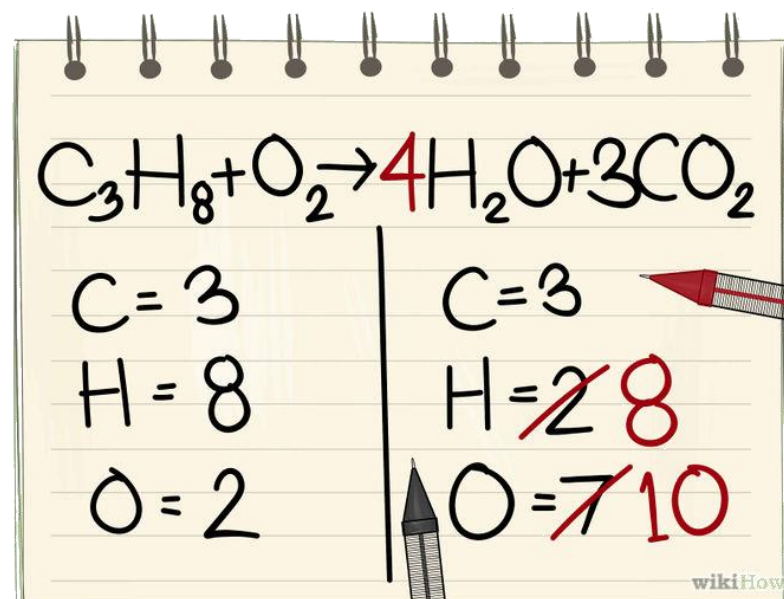 C₃H₈+O₂→4H₂O+3CO₂
C=3
H=8
O=2
C=3
H=2 8
O=7 10
wikiHow